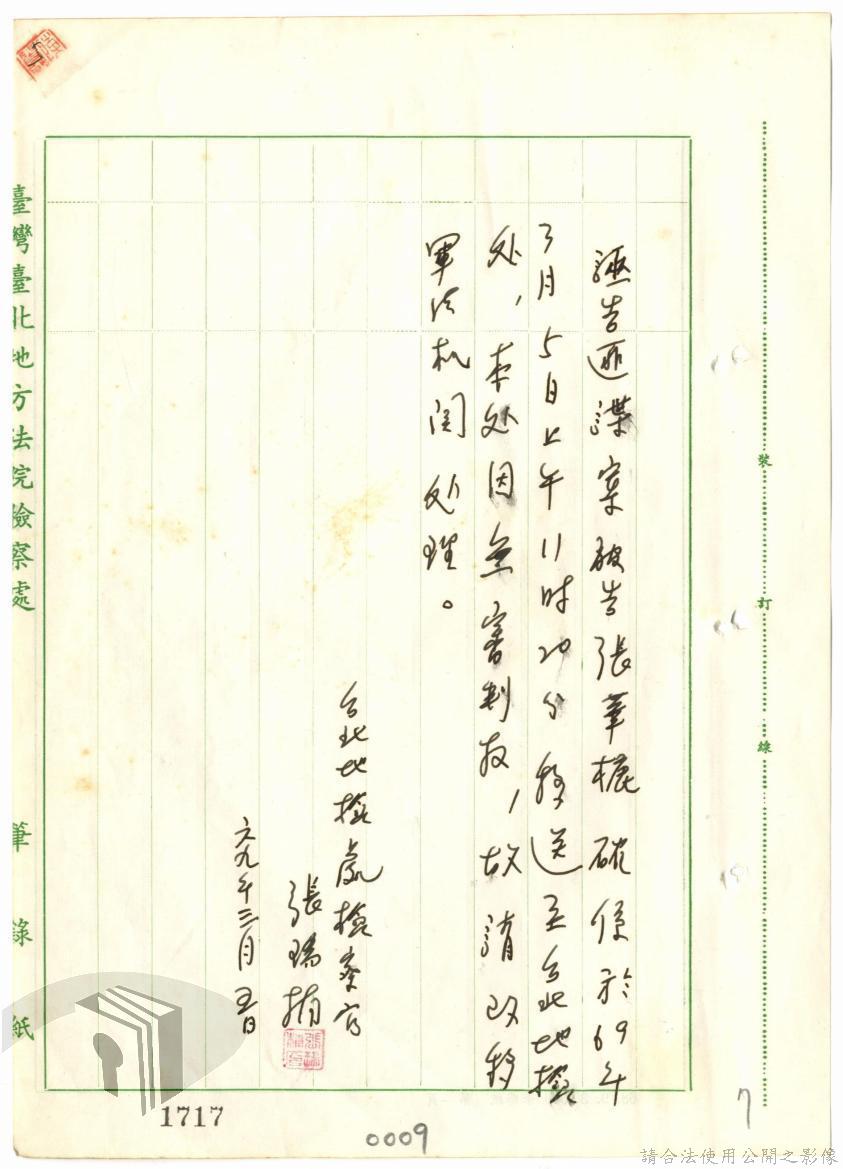 誣告匪諜案被告張華 確係於69年
3月5日上午11时20分移送至台北地檢
处，本处因無審判权，故請改移
軍法机関处理。
台北地檢處檢察官
張瑞楠
六九年三月五日
臺灣臺北地方法院檢察處
筆錄紙
裝訂線
1717
0009
7
請合法使用公開之影像